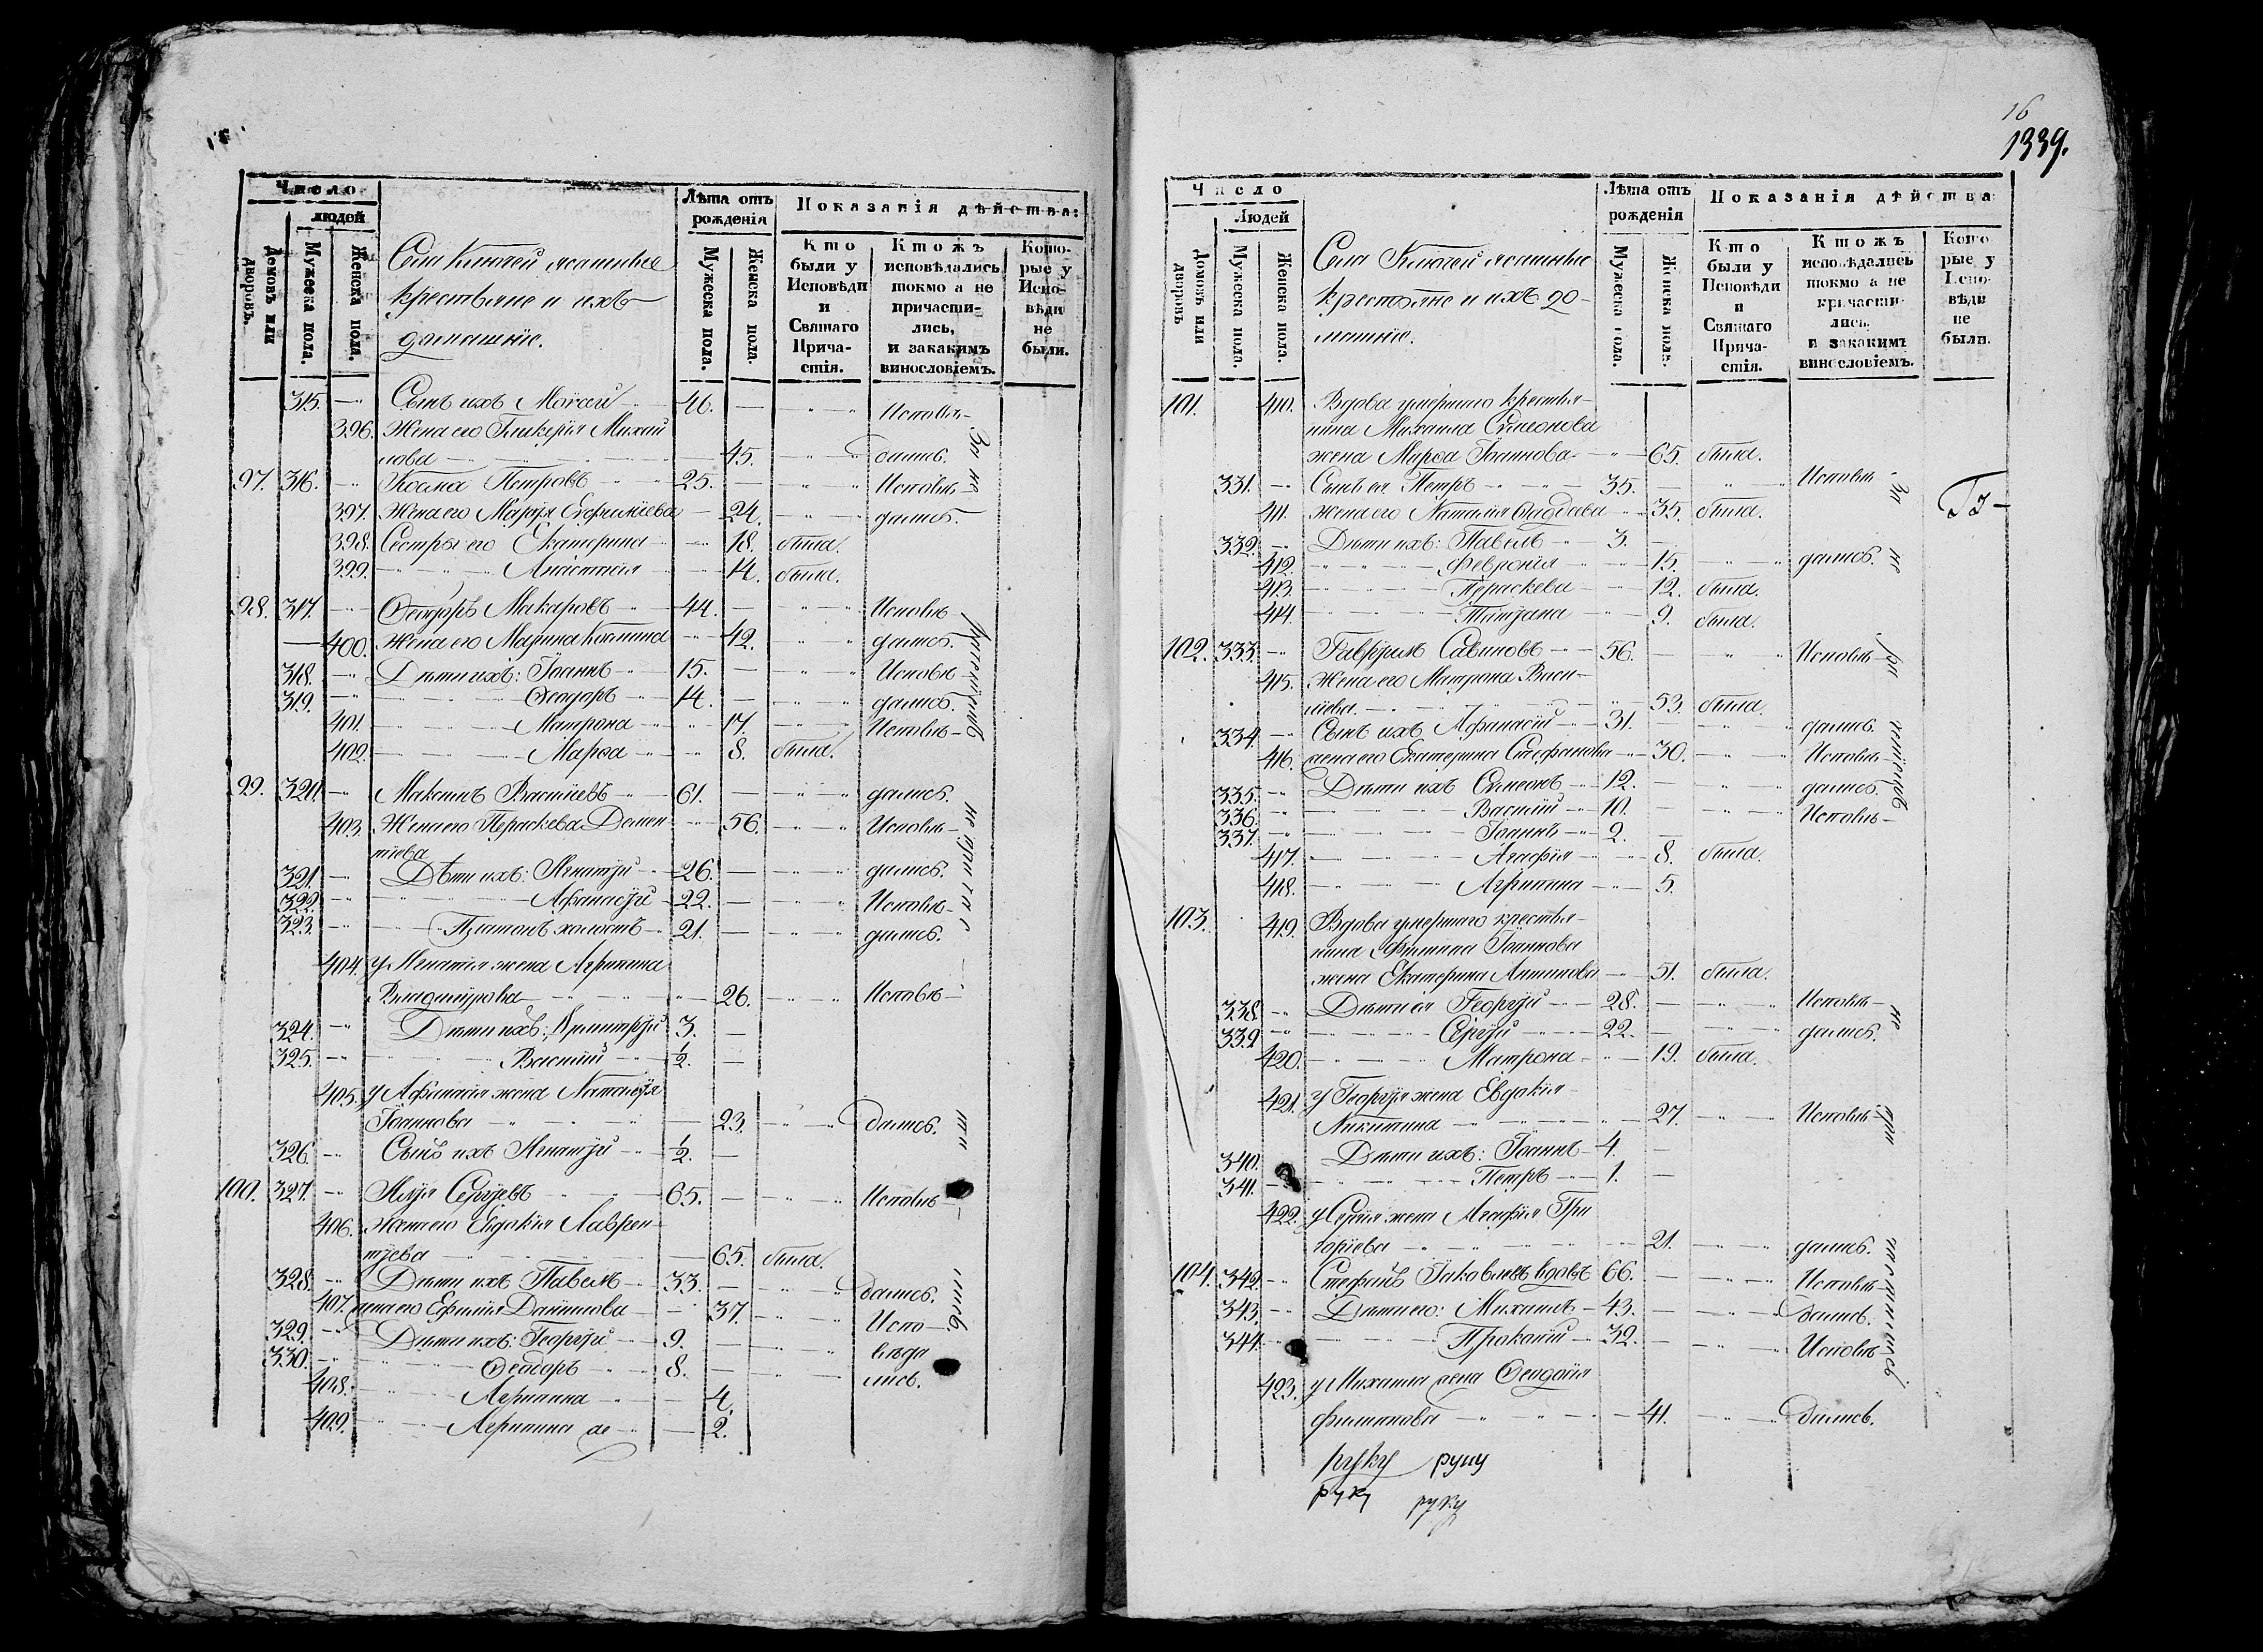 Число
людей
Домовъ или дворовъ.
Мужеска пола.
Женска пола.
Села Ключей ясашные
крестьяне и ихъ
домашніе.
Лѣта отъ рожденія
Мужеска пола.
Женска пола.
Показанія дѣйства:
Кто были у Исповѣди и Святаго Прича-стія.
Ктожъ исповѣдались токмо а не причасти-лись, и закакимъ винословіемъ.
Кото-рые у Испо-вѣди не были.
315. Сынъ ихъ 46. Исповѣ-
396. Жена его Гликерія Михай
лова 45. дались.
97. 316. Косма Петровъ 25. Исповѣ-
397. Жена его Марѳа 24. дались.
398. Сестры его Екатерина 18. была.
399. Анастасія 14. была.
98. 317. Ѳеодоръ Макаровъ 44. Исповѣ-
400. Жена его Марина Космина 42. дались.
318. Дѣти ихъ: Іоаннъ 15. Исповѣ-
319. Ѳеодоръ 14. дались.
401. Матрона 17. Исповѣ-
402. Марѳа 8. была.
99. 320. Максимъ Васильевъ 61. дались.
403. Жена его Пераскева Демен- 56. Исповѣ-
тіева
321. Дѣти ихъ: Игнатій 26. дались.
322. Афанасій 22. Исповѣ-
323. Платонъ холостъ 21. дались.
404. у Игнатія жена Агрипина
Владимірова 26. Исповѣ-
324. Дѣти ихъ: Димитрій 3.
325. Василій ½.
405. у Афанасія жена Наталія
Іоаннова 23. дались.
326. Сынъ ихъ Игнатій ½.
100. 327. Илія Сергіевъ 65. Исповѣ-
406. жена его Евдокія Лаврен-
тіева 65. была.
328. Дѣти ихъ Павелъ 33. дались.
407. жена его Ефимія Даниилова 37. Испо-
329. Дѣти ихъ: Георгій 9. вѣда
330. Ѳеодоръ 8. лись.
408. Агрипина 4.
409. Агрипина же 2.
За не
причаща
лись
16
1339.
Число
Людей
Домовъ или дворовъ
Мужеска пола.
Женска пола.
Села Ключей ясашные
крестьяне и ихъ до-
машніе.
Лѣта отъ рожденія
Мужеска пола.
Женска пола.
Показанія дѣйства
Кто были у Исповѣди и Святаго Прича-стія.
Ктожъ исповѣдались токмо а не причасти-лись, и закакимъ винословіемъ.
Кото-рые у Испо-вѣди не были.
101. 410. Вдова умершаго крестья-
нина Михаила Симеонова
жена Марѳа Іоаннова 65. была.
331. Сынъ ея Петръ 35. Исповѣ-
411. жена его Наталія Ѳаддеева 35. была.
332. Дѣти ихъ: Павелъ 3.
412. Февронія 15. дались.
413. Пераскева 12. была.
414. Татіана 9. была.
102. 333. Гавріилъ Савиновъ 56. Исповѣ-
415. Жена его Матрона Васи-
льева 53. была.
334. Сынъ ихъ Афанасій 31. дались.
416. жена его Екатерина Стефанова 30. Исповѣ-
335. Дѣти ихъ Симеонъ 12. дались.
336. Василій 10. Исповѣ-
337. Іоаннъ 2.
417. Агафія 8. была.
418. Агрипина 5.
103. 419. Вдова умершаго крестья-
нина Филипа Іоаннова
жена Екатерина 51. была.
338. Дѣти ея Георгій 28. Исповѣ-
339. Сергій 22. дались.
420. Матрона 19. была.
421. у Георгія жена Евдокія
Никитина 27. Исповѣ-
340. Дѣти ихъ: Іоаннъ 4.
341. Петръ 1.
422. у Сергія жена Агафія Гри
горіева 21. дались.
104. 342. Стефанъ Іаковлевъ вдовъ 66. Исповѣ-
343. Дѣти его: Михаилъ 43. дались.
344. Прокопій 32. Исповѣ-
423. у Михаила жена Ѳеодосія
Филипова 41. дались.
За не
при
руку руку
руку руку